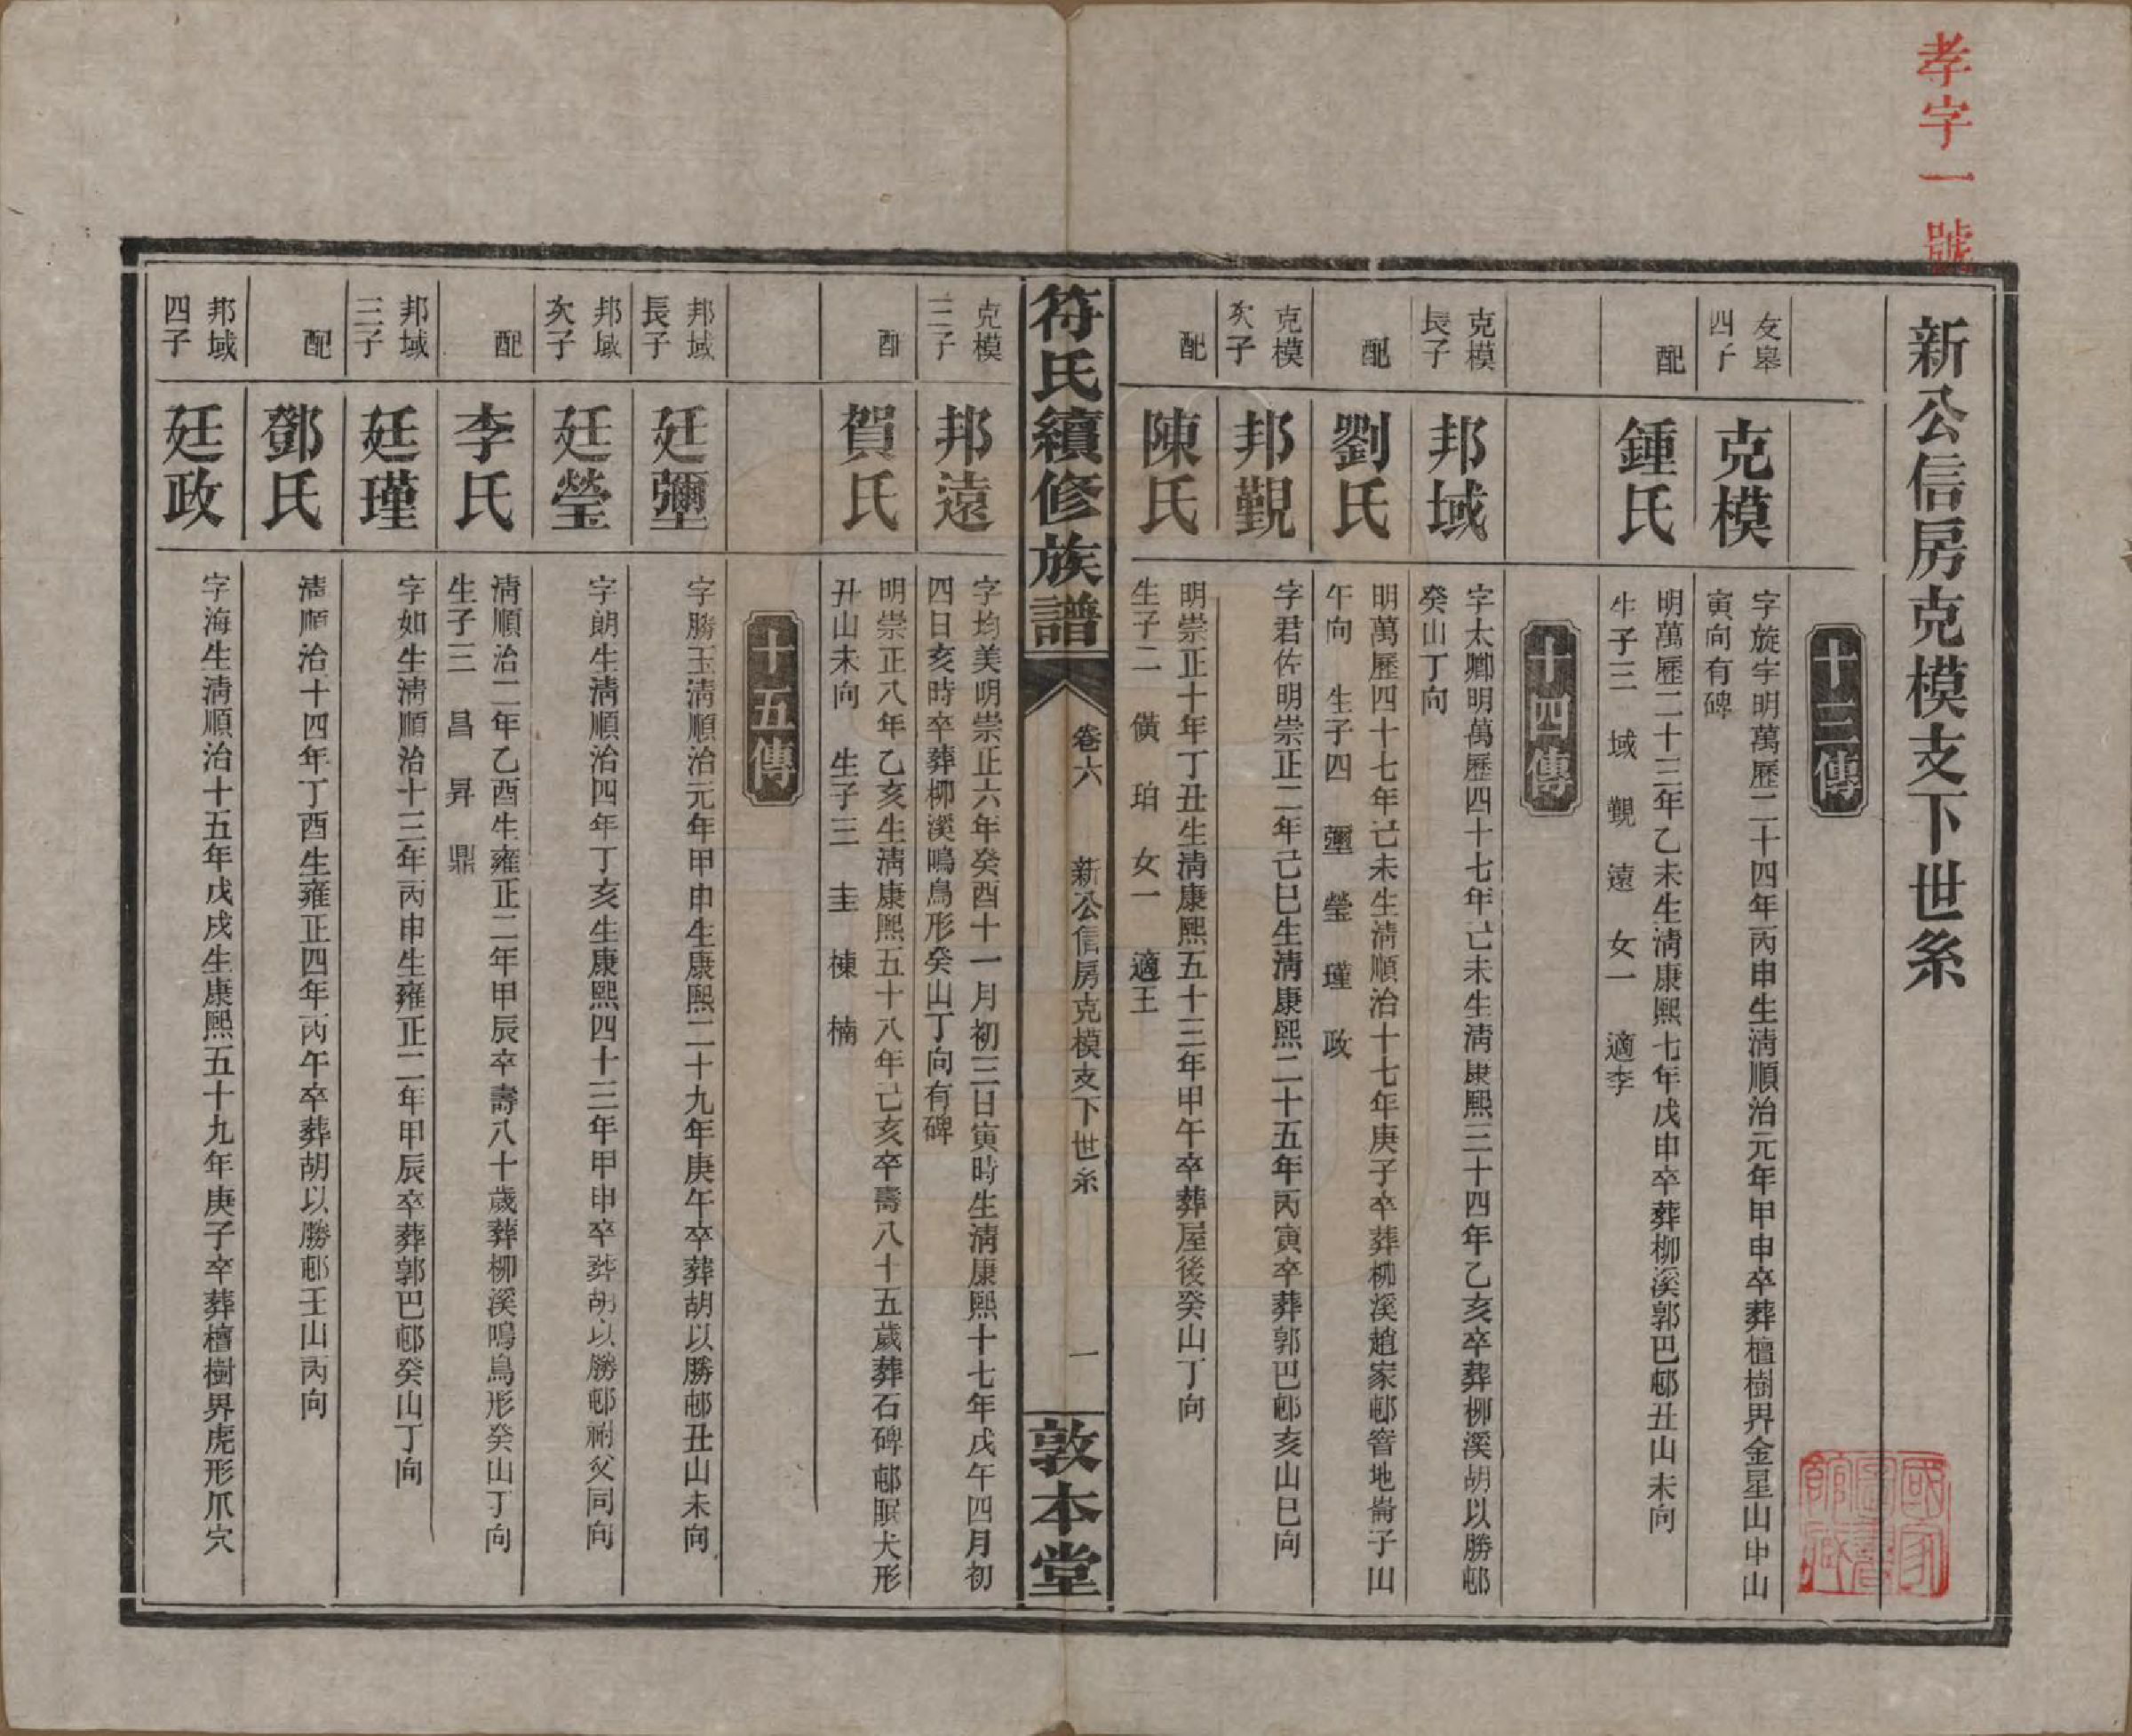 孝字一號
新公信房克模支下世系
十三傳
友皋四子
克模
字旋宇明萬歷二十四年丙申生淸順治元年甲申卒葬檀樹界金星山申山
寅向有碑
配
鍾氏
明萬歷二十三年乙未生淸康熙七年戊申卒葬柳溪郭巴邨丑山未向
生子三 域 覲 遠 女一 適李
十四傳
克模長子
邦域
字太卿明萬歷四十七年己未生淸康熙三十四年乙亥卒葬柳溪胡以勝邨
癸山丁向
配
劉氏
明萬歷四十七年己未生淸順治十七年庚子卒葬柳溪趙家邨窨地崙子山
午向 生子四 壐 瑩 瑾 政
克模次子
邦覲
字君佐明崇正二年己巳生淸康熙二十五年丙寅卒葬郭巴邨亥山巳向
配
陳氏
明崇正十年丁丑生淸康熙五十三年甲午卒葬屋後癸山丁向
生子二 僙 珀 女一 適王
符氏續修族譜
卷六
新公信房克模支下世系
一
敦本堂
克模三子
邦遠
字均美明崇正六年癸酉十一月初三日寅時生淸康熙十七年戊午四月初
四日亥時卒葬柳溪鳴鳥形癸山丁向有碑
配
賀氏
明崇正八年乙亥生淸康熙五十八年己亥卒壽八十五歲葬石碑邨眠犬形
丑山未向 生子三 圭 棟 楠
十五傳
邦域長子
廷壐
字勝玉淸順治元年甲申生康熙二十九年庚午卒葬胡以勝邨丑山未向
邦域次子
廷瑩
字朗生淸順治四年丁亥生康熙四十三年甲申卒葬胡以勝邨祔父同向
配
李氏
淸順治二年乙酉生雍正二年甲辰卒壽八十歲葬柳溪鳴鳥形癸山丁向
生子三 昌 昇 鼎
邦域三子
廷瑾
字如生淸順治十三年丙申生雍正二年甲辰卒葬郭巴邨癸山丁向
配
鄧氏
淸順治十四年丁酉生雍正四年丙午卒葬胡以勝邨壬山丙向
邦域四子
廷政
字海生淸順治十五年戊戌生康熙五十九年庚子卒葬檀樹界虎形爪穴
國家圖書館藏